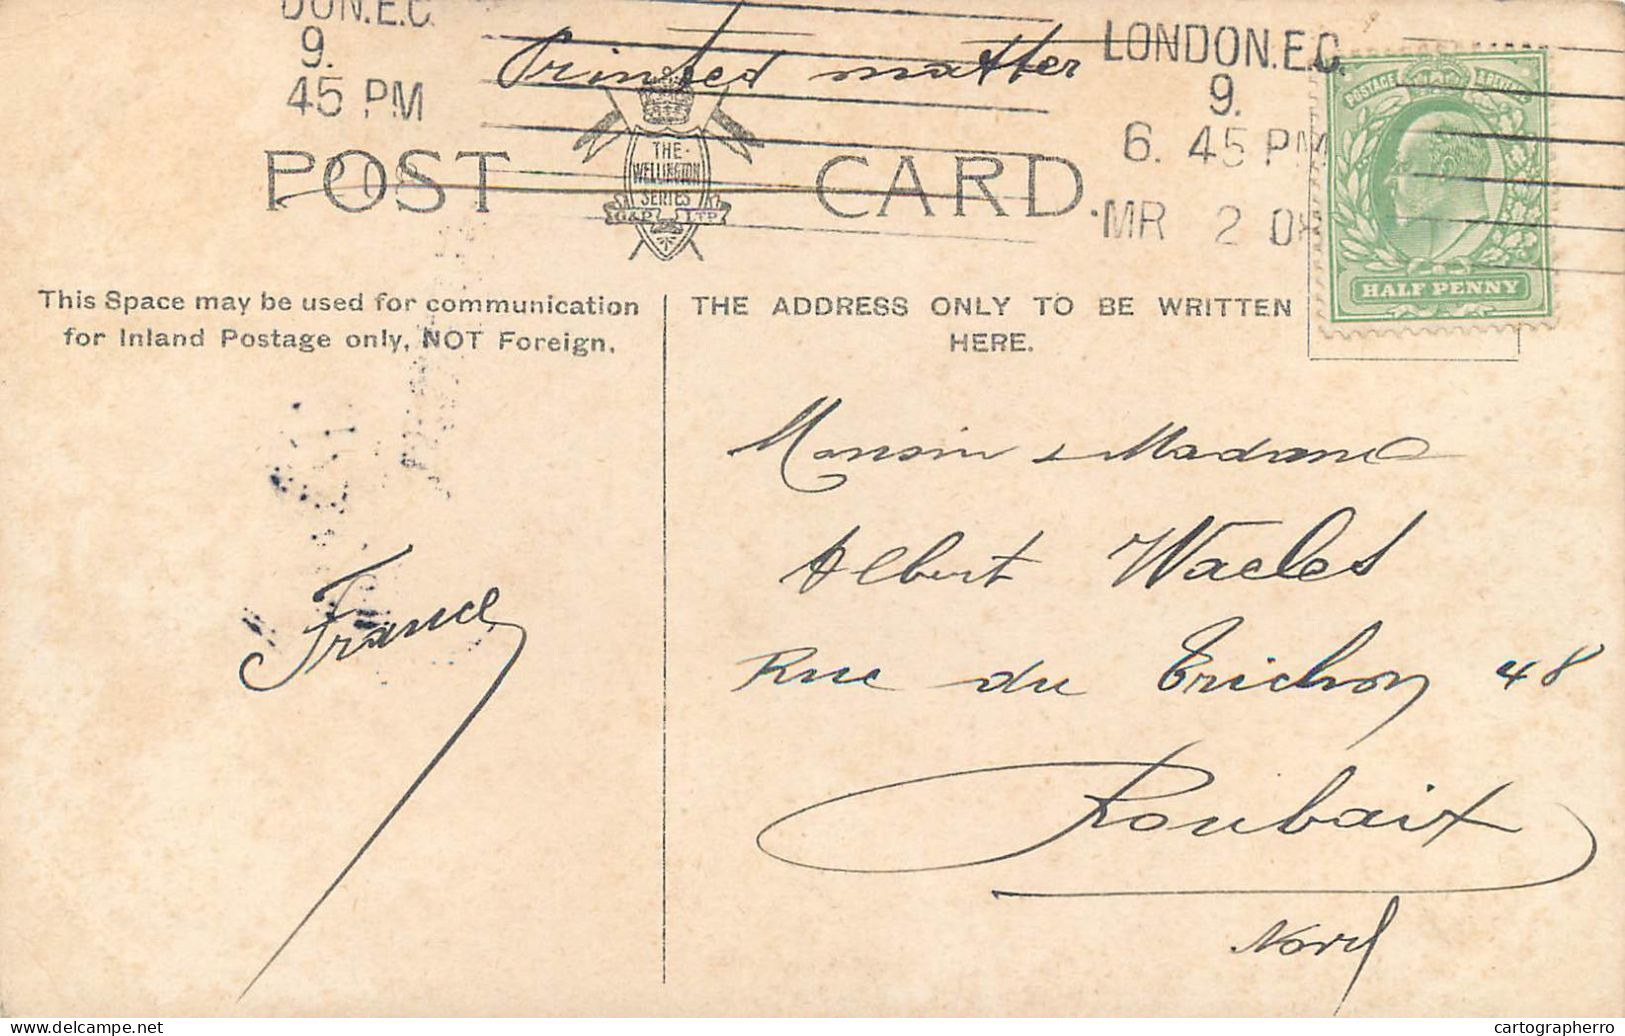 DON.E.C.
9.
45 PM
Printed matter
LONDON.E.C.
9.
6. 45 PM
MR 2 08
POSTAGE & REVENUE
HALF PENNY
POST CARD.
THE
WELLINGTON
SERIES
G&P LTD
This Space may be used for communication
for Inland Postage only, NOT Foreign.
THE ADDRESS ONLY TO BE WRITTEN
HERE.
France
Madame
Albert Waeles
Rue du Trichon 48
Roubaix
Nord
cartographerro